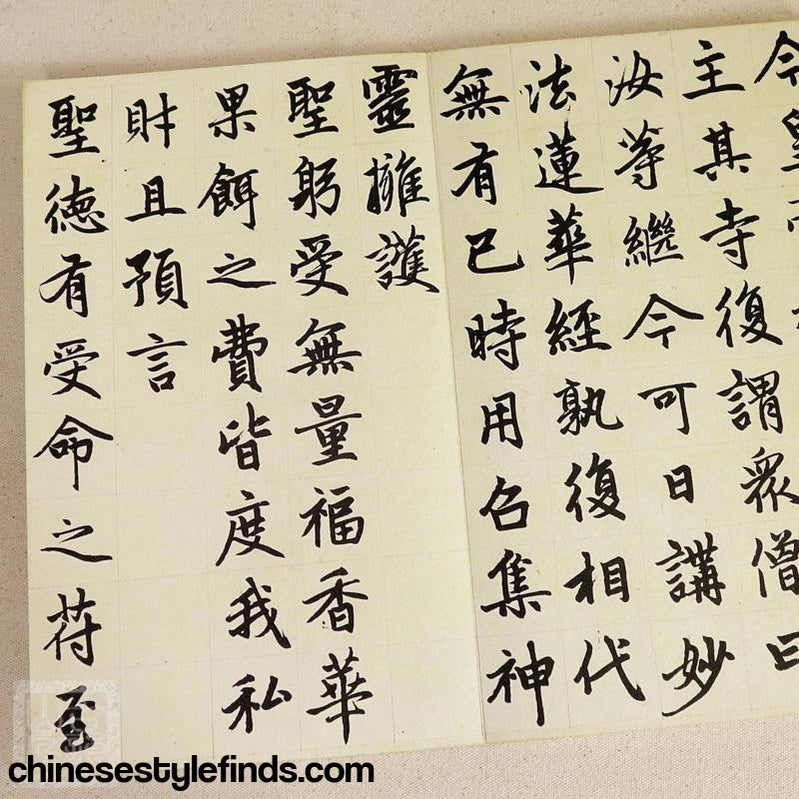 今皇
主其寺復謂眾僧曰
汝等繼今可日講妙
法蓮華經孰復相代
無有已時用召集神
靈擁護
聖躬受無量福香華
果餌之費皆度我私
財且預言
聖德有受命之符至
chinesestylefinds.com